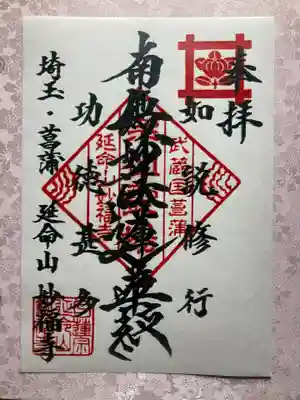 奉拝
如説修行
武蔵国菖蒲
南無妙法蓮華経
延命山妙福寺
功徳甚多
埼玉・菖蒲 延命山 妙福寺